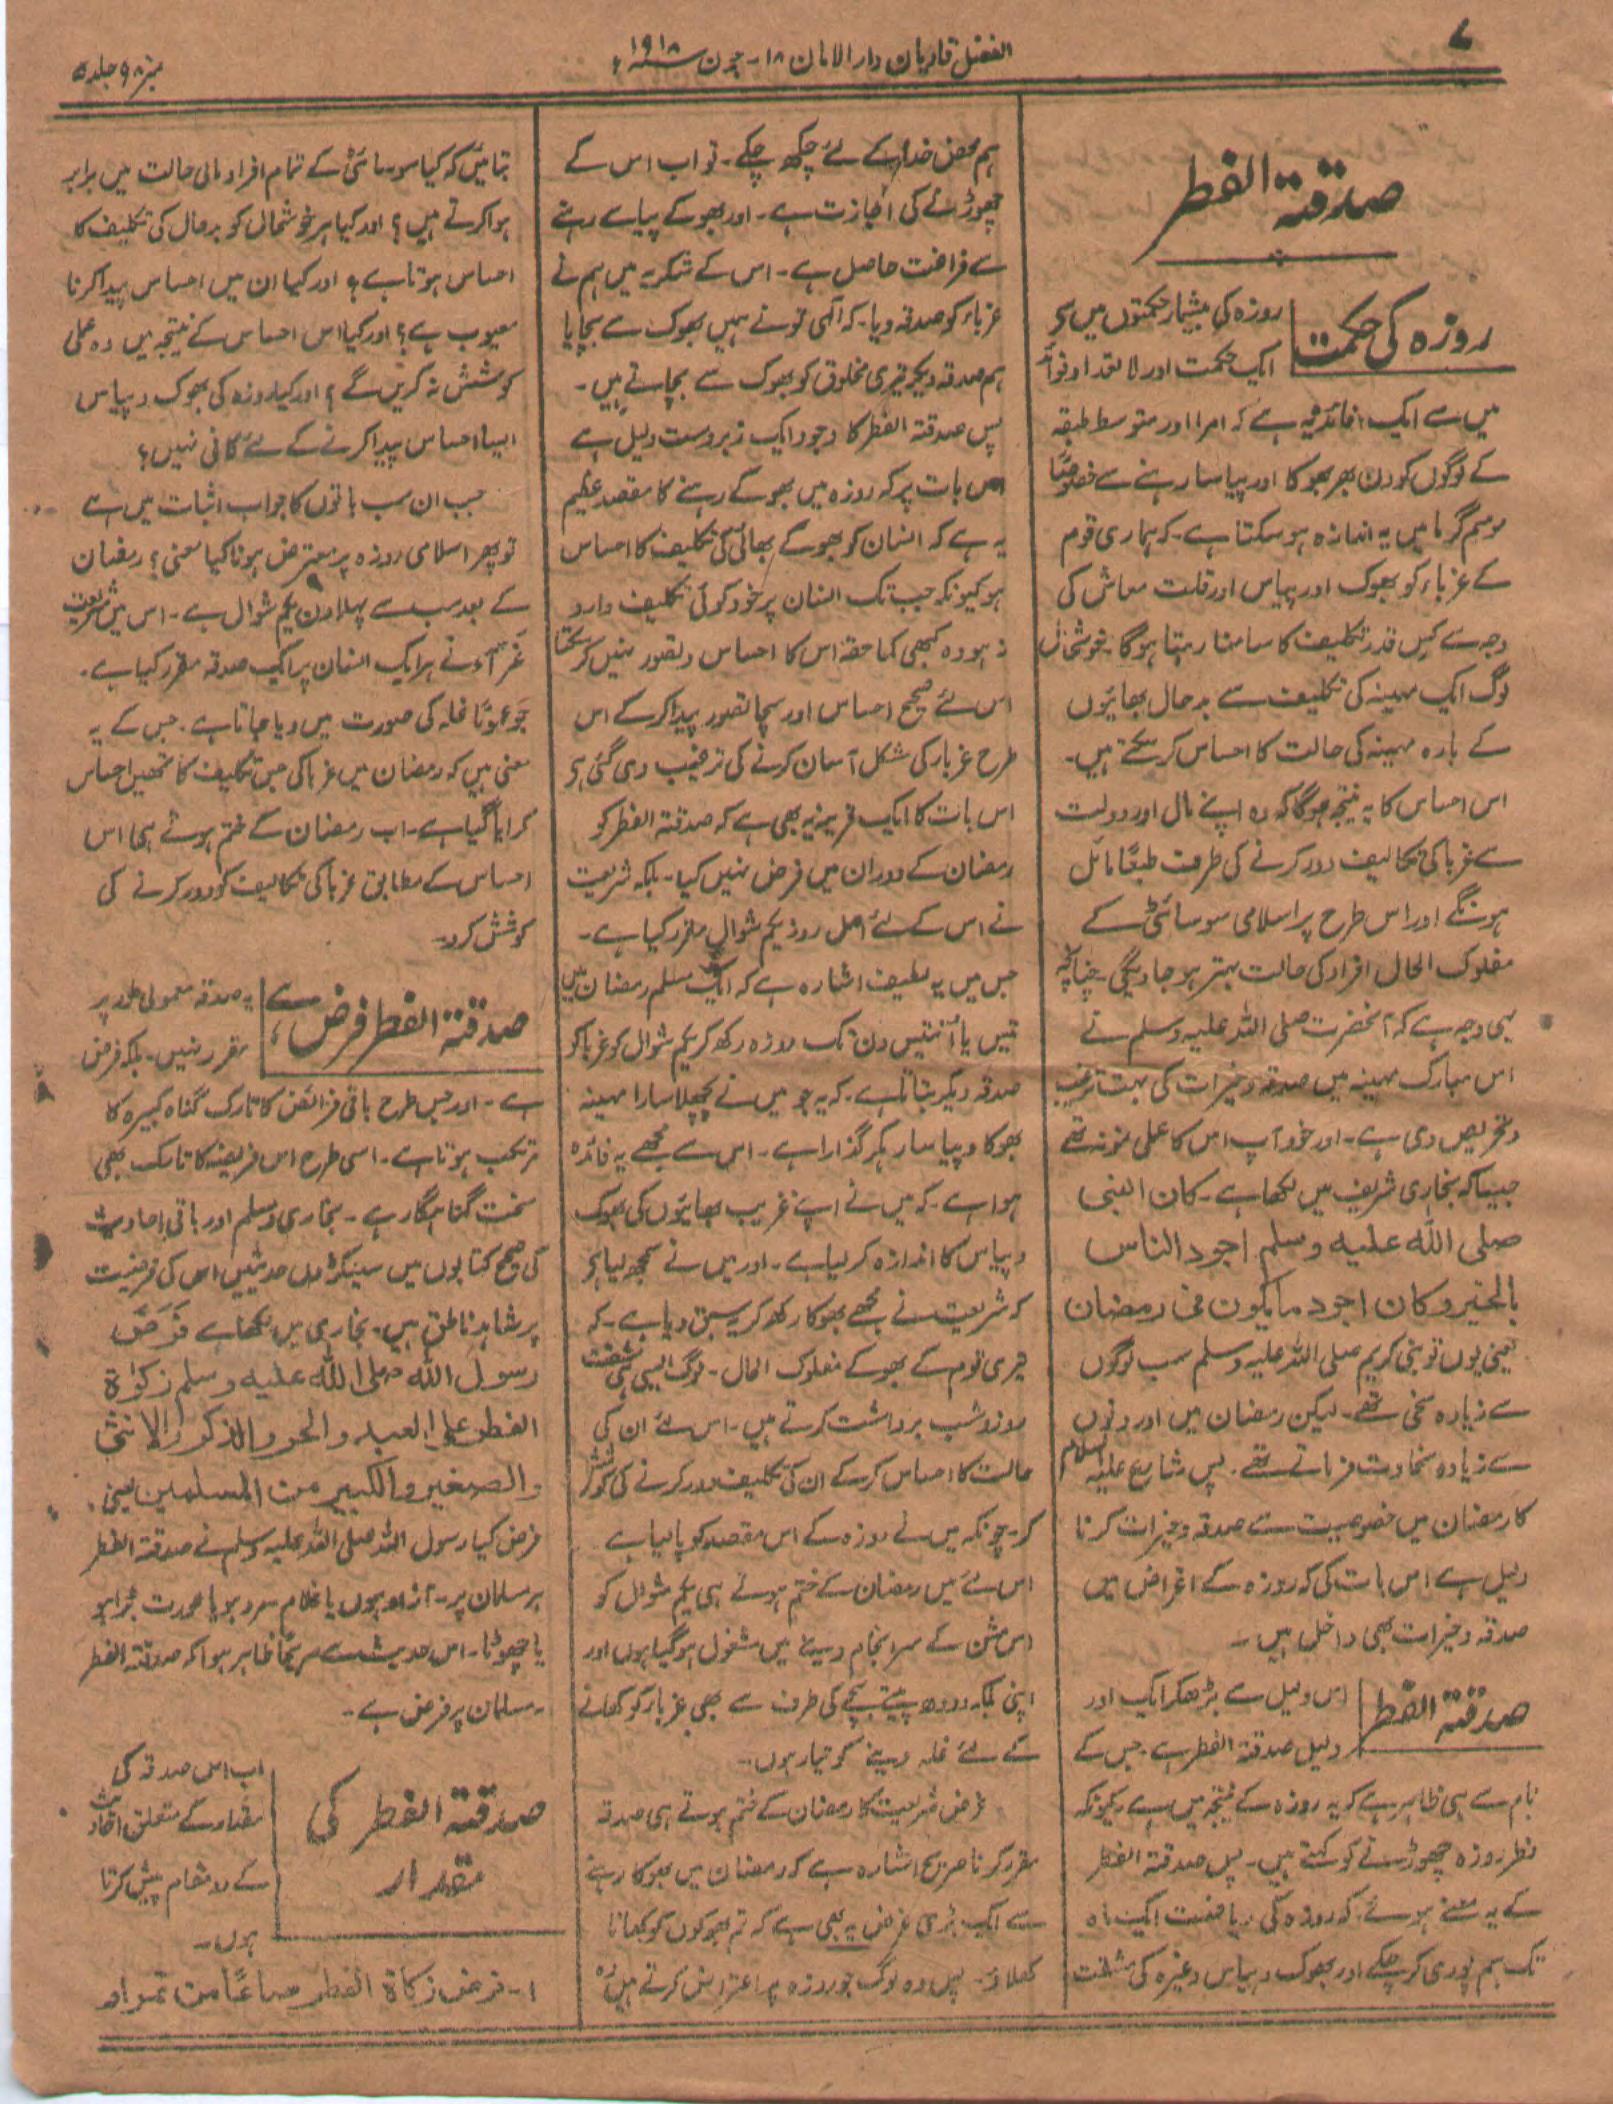 ۷
الفضل قادیان دارالامان ۱۸۔ جون سنہ ۱۹۱۸ء
نمبر ۹۸ جلد ۵
صدقۃ الفطر
روزہ کی حکمت
روزہ کی بیشمار حکمتوں میں سے
ایک حکمت اور لاتعداد فوائد
میں سے ایک فائدہ یہ ہے کہ امرا اور متوسط طبقہ
کے لوگوں کو دن بھر بھوکا اور پیاسا رہنے سے خصوصًا
موسم گرما میں یہ اندازہ ہو سکتا ہے۔ کہ ہماری قوم
کے غرباء کو بھوک اور پیاس اور قلت معاش کی
وجہ سے کس قدر تکلیف کا سامنا رہتا ہوگا۔ خوشحال
لوگ ایک مہینہ کی تکلیف سے بدحال بھائیوں
کے بارہ مہینہ کی حالت کا احساس کر سکتے ہیں۔
اس احساس کا یہ نتیجہ ہوگا کہ وہ اپنے مال اور دولت
سے غربا کی تکالیف دور کرنے کی طرف طبعًا مائل
ہونگے اور اس طرح پر اسلامی سوسائٹی کے
مفلوک الحال افراد کی حالت بہتر ہو جاویگی۔ چنانچہ
یہی وجہ ہے کہ آنحضرت صلی اللہ علیہ وسلم نے
اس مبارک مہینہ میں صدقہ و خیرات کی بہت ترغیب
و تحریص دی ہے۔ اور خود آپ اس کا عملی نمونہ تھے
جیسا کہ بخاری شریف میں لکھا ہے۔ کان النبی
صلی اللہ علیہ وسلم اجود الناس
بالخیر وکان اجود ما یکون فی رمضان
یعنی یوں تو نبی کریم صلی اللہ علیہ وسلم سب لوگوں
سے زیادہ سخی تھے۔ لیکن رمضان میں اور دنوں
سے زیادہ سخاوت فرماتے تھے۔ پس شارع علیہ السلام
کا رمضان میں خصوصیت سے صدقہ و خیرات کرنا
دلیل ہے اس بات کی کہ روزہ کے اغراض میں
صدقہ و خیرات بھی داخل ہیں۔
صدقۃ الفطر
اس دلیل سے بڑھکر ایک اور
دلیل صدقۃ الفطر ہے۔ جس کے
نام سے ہی ظاہر ہے کہ یہ روزہ کے نتیجہ میں ہے۔ کیونکہ
فطر روزہ چھوڑنے کو کہتے ہیں۔ پس صدقۃ الفطر
کے یہ معنے ہوئے۔ کہ روزہ کی ریاضت ایک ماہ
تک ہم پوری کر چکے اور بھوک و پیاس وغیرہ کی مشقت
ہم محض خدا کے لئے چکھ چکے۔ تو اب اس کے
چھوڑنے کی اجازت ہے۔ اور بھوکے پیاسے رہنے
سے فراغت حاصل ہے۔ اس کے شکریہ میں ہم نے
غرباء کو صدقہ دیا۔ کہ الٰہی تو نے ہمیں بھوک سے بچایا
ہم صدقہ دیکر تیری مخلوق کو بھوک سے بچاتے ہیں۔
پس صدقۃ الفطر کا وجود ایک زبردست دلیل ہے
اس بات پر کہ روزہ میں بھوکے رہنے کا مقصد عظیم
یہ ہے کہ انسان کو بھوکے بھائی کی تکلیف کا احساس
ہو کیونکہ جب تک انسان پر خود کوئی تکلیف وارد
نہ ہو وہ کبھی کماحقہ اس کا احساس و تصور نہیں کر سکتا
اس لئے صحیح احساس اور سچا تصور پیدا کر کے اس
طرح غرباء کی مشکل آسان کرنے کی ترغیب دی گئی ہے
اس بات کا ایک قرینہ یہ بھی ہے کہ صدقۃ الفطر کو
رمضان کے دوران میں فرض نہیں کیا۔ بلکہ شریعت
نے اس کے لئے اصل روز یکم شوال مقرر کیا ہے۔
جس میں یہ لطیف اشارہ ہے کہ ایک مسلم رمضان میں
تیس یا اُنتیس دن تک روزہ رکھ کر یکم شوال کو غربا کو
صدقہ دیکر بتاتا ہے۔ کہ یہ جو میں نے پچھلا سارا مہینہ
بھوکا و پیاسا رہکر گذارا ہے۔ اس سے مجھے یہ فائدہ
ہوا ہے۔ کہ میں نے اپنے غریب بھائیوں کی بھوک
و پیاس کا اندازہ کر لیا ہے۔ اور میں نے سمجھ لیا ہے
کہ شریعت نے مجھے بھوکا رکھ کر یہ سبق دیا ہے۔ کہ
تیری قوم کے بھوکے مفلوک الحال۔ لوگ ایسی ہی مشقت
روز و شب برداشت کرتے ہیں۔ اس لئے ان کی
حالت کا احساس کر کے ان کی تکلیف دور کرنے کی کوشش
کر۔ چونکہ میں نے روزہ کے اس مقصد کو پا لیا ہے
اس لئے میں رمضان کے ختم ہوتے ہی یکم شوال کو
اس مشن کے سرانجام دینے میں مشغول ہو گیا ہوں اور
اپنی بلکہ دودھ پیتے بچے کی طرف سے بھی غرباء کو کھانے
کے لئے غلہ دینے کو تیار ہوں۔
غرض شریعت کا رمضان کے ختم ہوتے ہی صدقہ
مقرر کرنا صریح اشارہ ہے کہ رمضان میں بھوکا رہنے
سے ایک بڑی غرض یہ بھی ہے کہ تم بھوکوں کو کھانا
کھلاؤ۔ پس وہ لوگ جو روزہ پر اعتراض کرتے ہیں وہ
بتائیں کہ کیا سوسائٹی کے تمام افراد مالی حالت میں برابر
ہوا کرتے ہیں؟ اور کیا ہر خوشحال کو بدحال کی تکلیف کا
احساس ہوتا ہے؟ اور کیا ان میں احساس پیدا کرنا
معیوب ہے؟ اور کیا اس احساس کے نتیجہ میں وہ عملی
کوشش نہ کریں گے؟ اور کیا روزہ کی بھوک و پیاس
ایسا احساس پیدا کرنے کے لئے کافی نہیں؟
جب ان سب باتوں کا جواب اثبات میں ہے
تو پھر اسلامی روزہ پر معترض ہونا کیا معنی؟ رمضان
کے بعد سب سے پہلا دن یکم شوال ہے۔ اس میں شریعت
غرّاء نے ہر ایک انسان پر ایک صدقہ مقرر کیا ہے۔
جو عمومًا غلہ کی صورت میں دیا جاتا ہے۔ جس کے یہ
معنی ہیں کہ رمضان میں غربا کی جس تکلیف کا تمھیں احساس
کرایا گیا ہے۔ اب رمضان کے ختم ہوتے ہی اس
احساس کے مطابق غربا کی تکالیف کو دور کرنے کی
کوشش کرو۔
صدقۃ الفطر فرض ہے
یہ صدقہ معمولی طور پر
مقرر نہیں۔ بلکہ فرض
ہے۔ اور جس طرح باقی فرائض کا تارک گناہ کبیرہ کا
مرتکب ہوتا ہے۔ اسی طرح اس فریضہ کا تارک بھی
سخت گناہگار ہے۔ بخاری و مسلم اور باقی احادیث
کی صحیح کتابوں میں سینکڑوں حدیثیں اس کی فرضیت
پر شاہد ناطق ہیں۔ بخاری میں لکھا ہے فَرَضَ
رسول اللہ صلی اللہ علیہ وسلم زکوٰۃ
الفطر علی العبد والحر والذکر والانثی
والصغیر والکبیر من المسلمین یعنی
فرض کیا رسول اللہ صلی اللہ علیہ وسلم نے صدقۃ الفطر
ہر مسلمان پر۔ آزاد ہوں یا غلام مرد ہو یا عورت بڑا ہو
یا چھوٹا۔ اس حدیث سے صریحًا ظاہر ہوا کہ صدقۃ الفطر
مسلمان پر فرض ہے۔
صدقۃ الفطر کی
مقدار
اب اس صدقہ کی
مقدار کے متعلق احادیث
کے دو مقام پیش کرتا
ہوں۔
۱۔ فرض زکاۃ الفطر صاعًا من تمر او